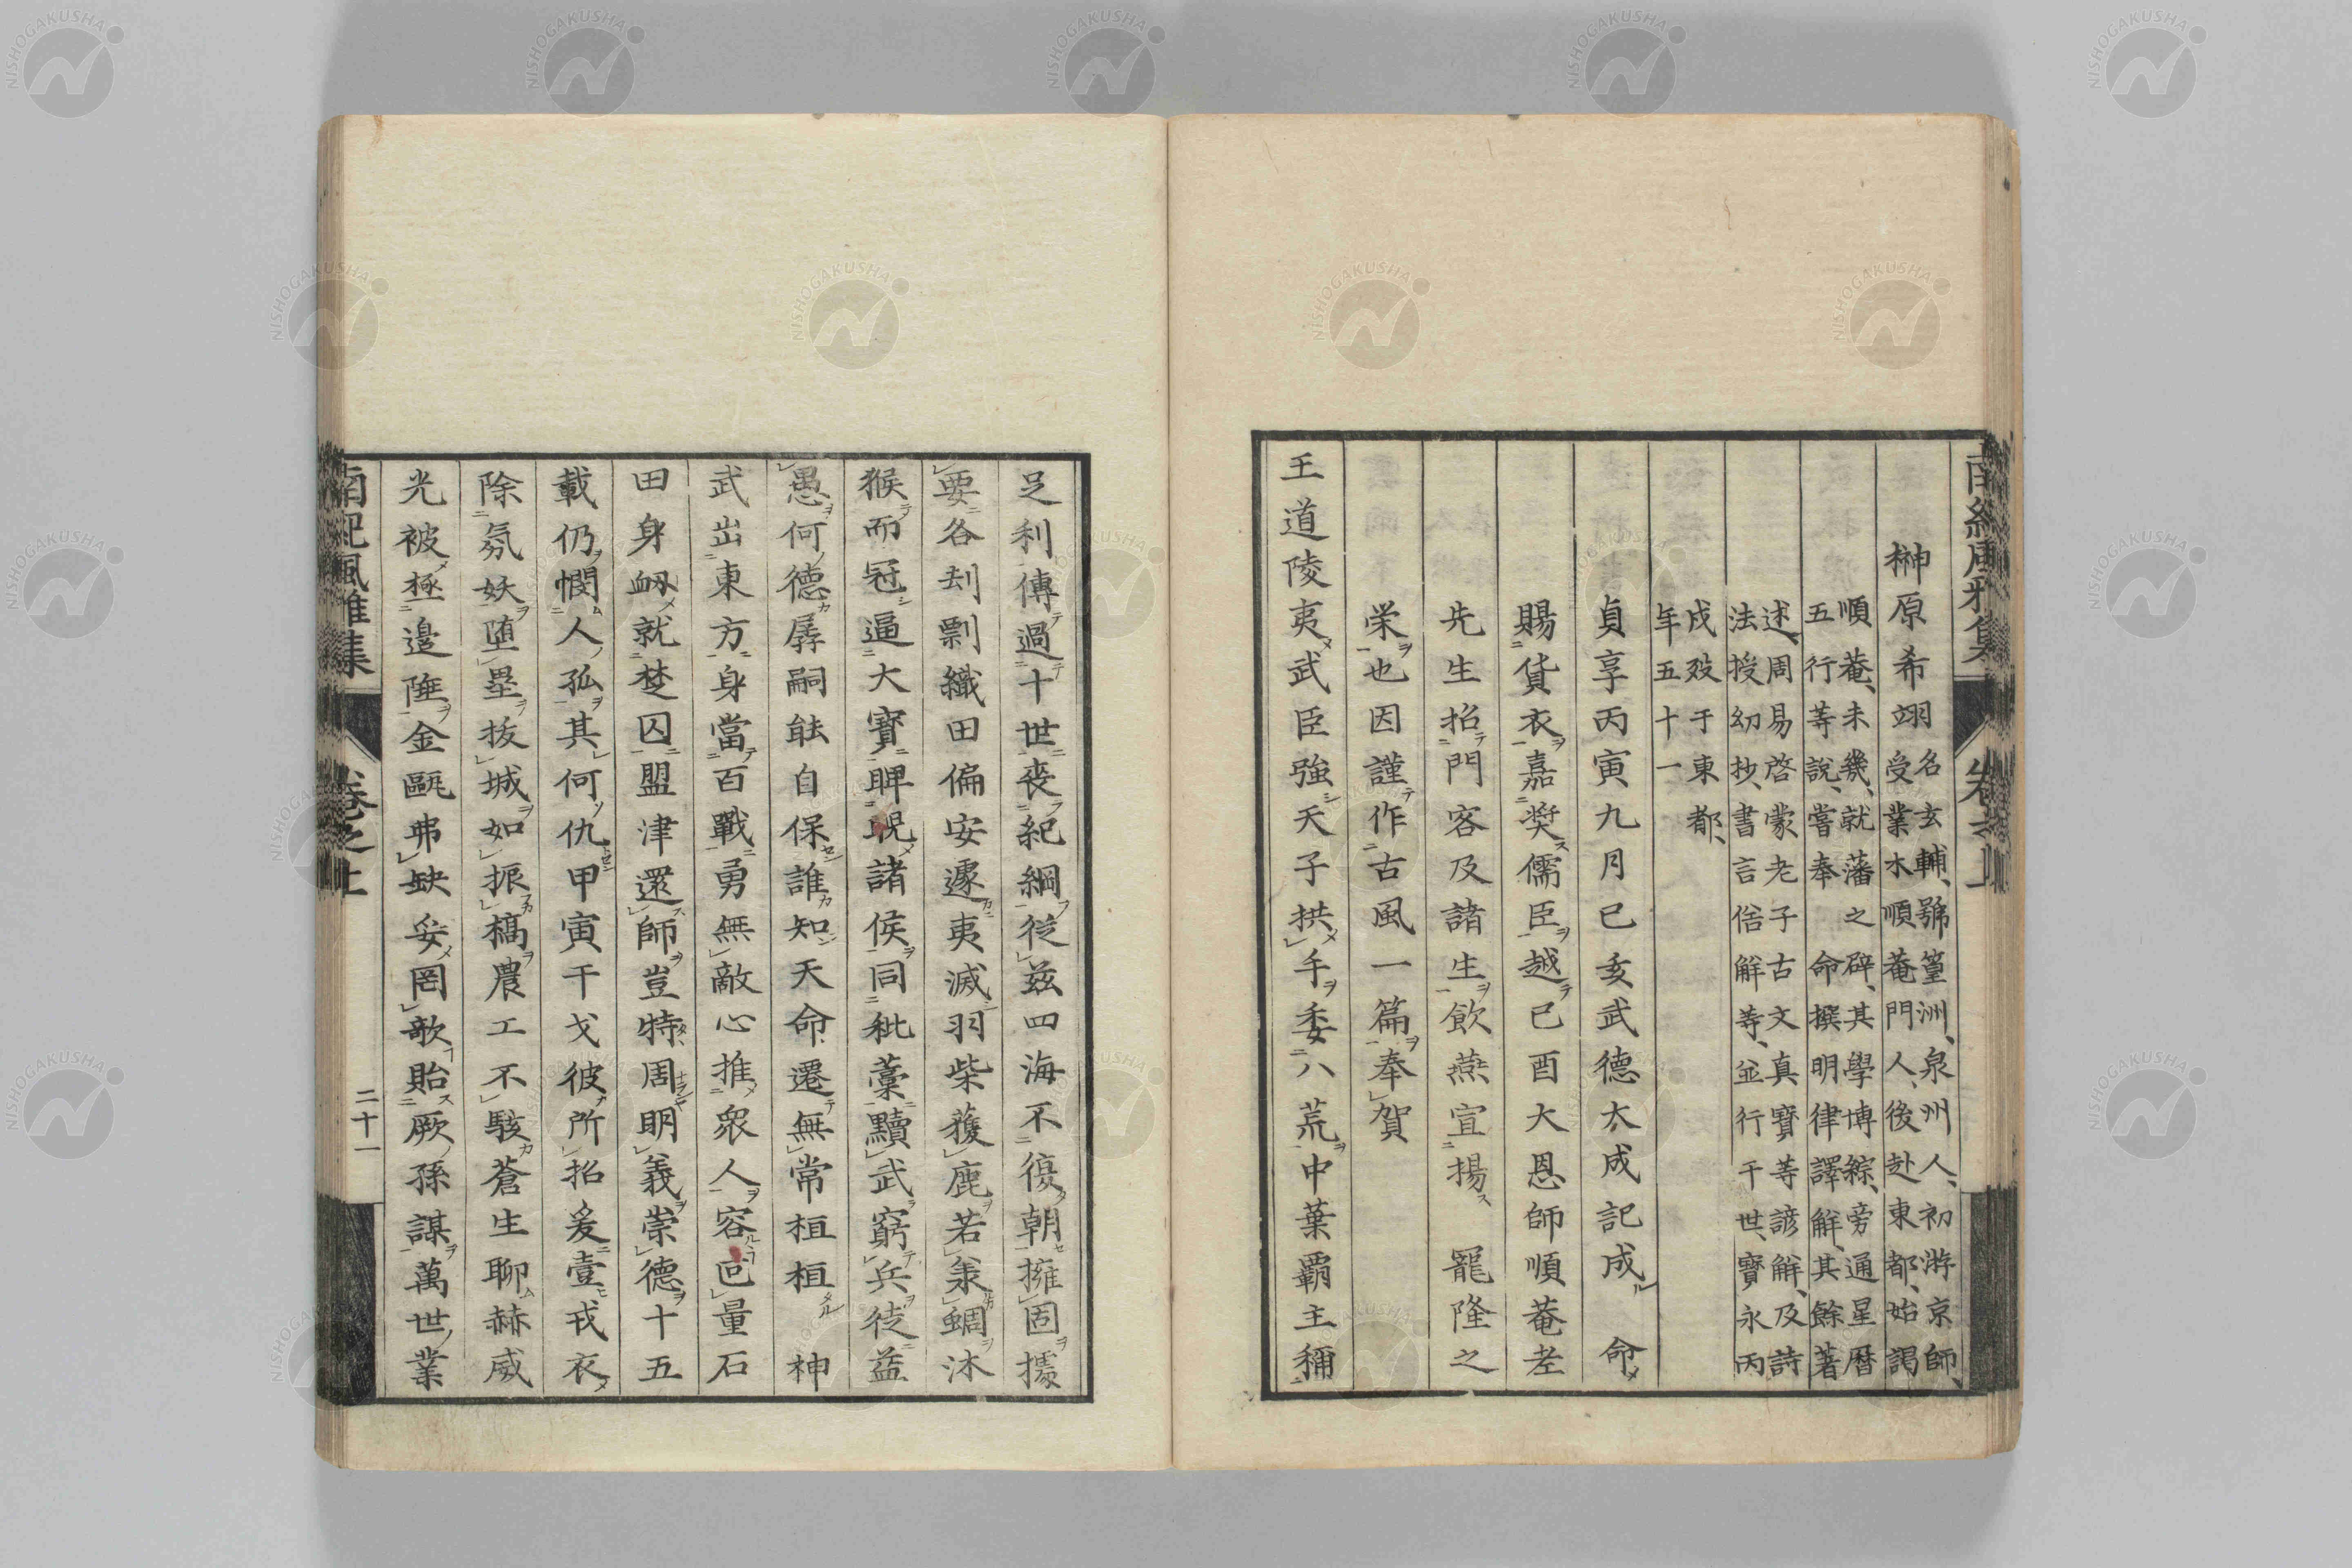 榊原希翊
名玄輔、號篁洲、泉州人、初游京師、
受業木順菴門人、後赴東都、始謁
順菴、未幾、就藩之辟、其學博綜、旁通星暦
五行等說、嘗奉 命撰明律譯解、其餘著
述、周易啓蒙老子古文真寶等諺解、及詩
法授幼抄、書言俗解等、並行于世、寶永丙
戌歿于東都、
年五十一
貞享丙寅九月己亥武德大成記成 命
賜貨衣嘉奬儒臣越己酉大恩師順菴老
先生招門客及諸生飲燕宣揚 寵隆之
栄也因謹作古風一篇奉賀
王道陵夷武臣強天子拱手委八荒中葉覇主稱
足利傳過十世喪紀綱從茲四海不復朝擁固據
要各刦剽織田偏安遽夷滅羽柴獲鹿若蒙蜩沐
猴而冠逼大寶睥睨諸侯同秕藁黷武窮兵徒益
愚何德孱嗣能自保誰知天命遷無常桓桓 神
武出東方身當百戰勇無敵心推衆人容囘量石
田身衂就楚囚盟津還師豈特周明義崇德十五
載仍憫人孤其何仇甲寅干戈彼所招爰壹戎衣
除氛妖堕壘抜城如振槁農工不駭蒼生聊赫威
光被極邉陲金甌弗缺妥罔歌貽厥孫謀萬世業
南紀風雅集
巻之上
二十一